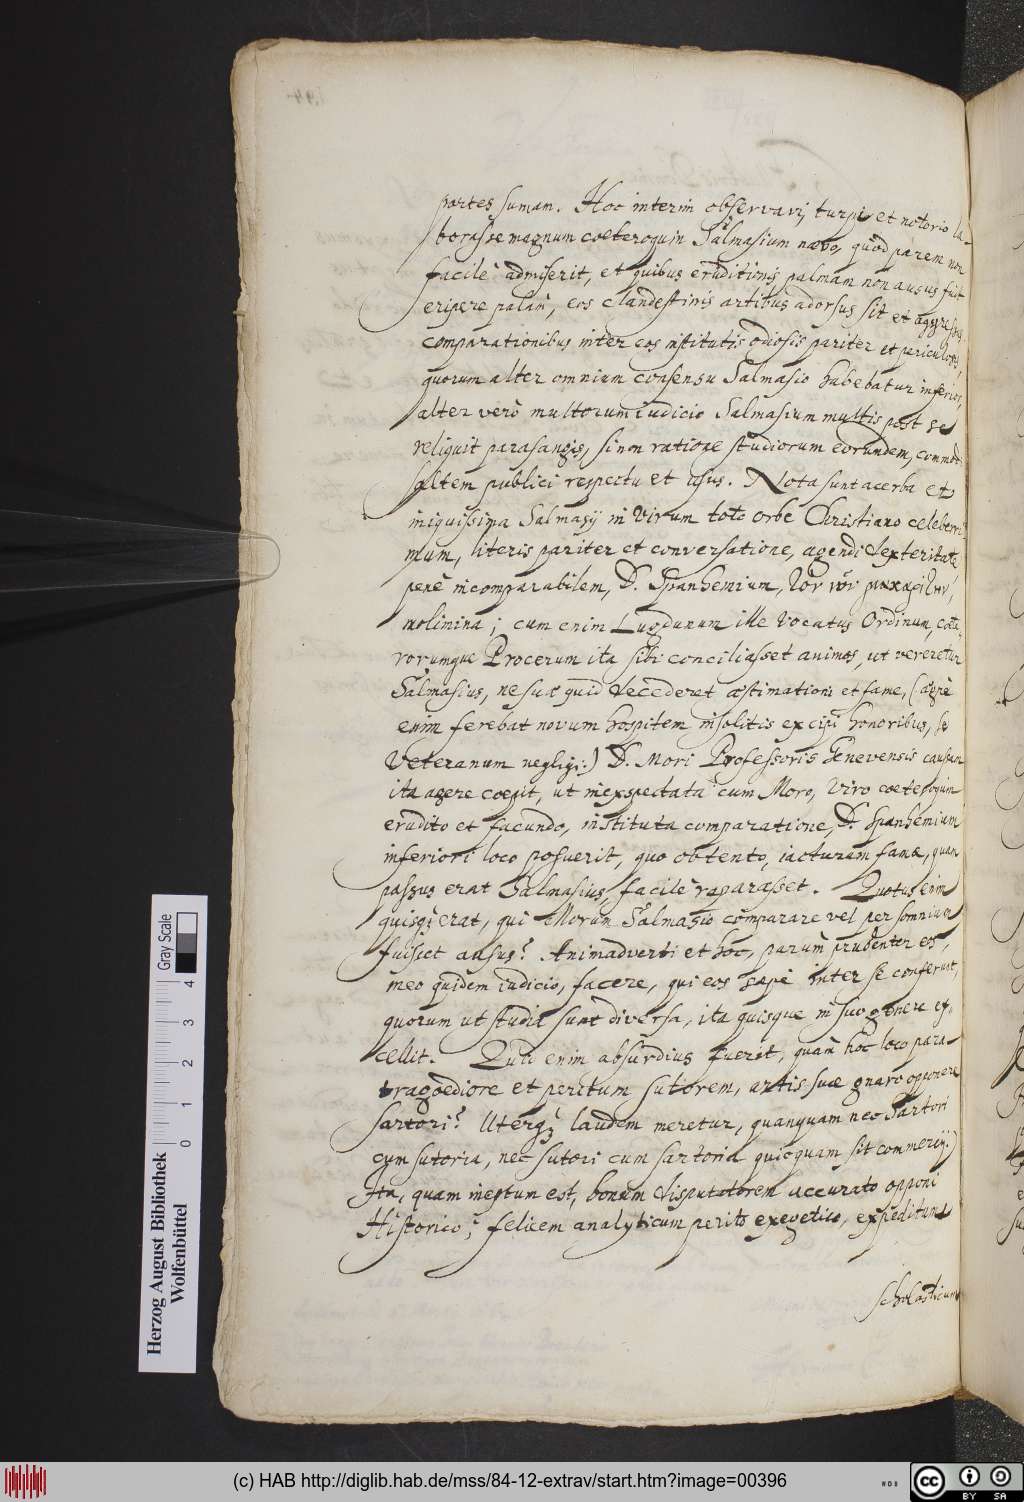 partes sumam. Hoc interim observavi, turpi et notorio la-
borasse magnum coeteroquin Salmasium naevo, quod parem non
facilè admiserit, et quibus eruditionis palmam non ausus fuit
eripere palàm, eos clandestinis artibus adorsus sit et aggressus
comparationibus inter eos institutis odiosis pariter et periculosis,
quorum alter omnium consensu Salmasio habebatur inferior,
alter verò multorum iudicio Salmasium multis post se
reliquit parasangis, si non ratione studiorum eorundem, commodi
saltem publici respectu et usus. Nota sunt acerba et
iniquissima Salmasij in Virum toto orbe Christiano celeberri-
mum, literis pariter et conversatione, agendi dexteritate
penè incomparabilem, D. Spanhemium,
molimina; cum enim Lugdunum ille vocatus Ordinum, coete-
rorumque Procerum ita sibi conciliasset animos, ut vereretur
Salmasius, ne suae quid decederet aestimationi et famae, (aegrè
enim ferebat novum hospitem insolitis excipi honoribus, se
Veteranum negligi:) D. Mori Professoris Genevensis caussam
ita agere coepit, ut inexspectata cum Moro, Viro coeteroquin
erudito et facundo, instituta comparatione, D. Spanhemium
inferiori loco posuerit, quo obtento, iacturam famae, quam
passus erat Salmasius, facilè raparasset. Quotus enim
quisq; erat, qui Morum Salmasio comparare vel per somnium
fuisset ausus? Animadverti et hoc, parum prudenter eos,
meo quidem iudicio, facere, qui eos saepè inter se conferunt,
quorum ut studia sunt diversa, ita quisque in suo genere ex-
cellit. Quid enim absurdius fuerit, quàm hoc loco para-
tragoediore et peritum sutorem, artis suae gnaro opponere
Sartori? Uterq; laudem meretur, quanquam nec Sartori
cum sutoria, nec sutori cum sartoria quicquam sit commercij.)
Ita, quam ineptum est, bonum disputatorem accurato opponi
Historico; felicem analyticum perito exegetico, expeditum
scholasticum
Herzog August Bibliothek
Wolfenbüttel
0 1 2 3 4
Gray Scale
(c) HAB http://diglib.hab.de/mss/84-12-extrav/start.htm?image=00396
cc BY SA